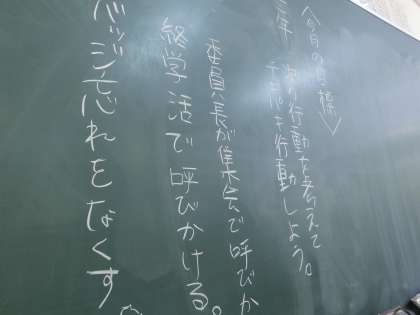 ＜今月の目標＞
年 次の行動を考えて
テキパキ行動しよう。
委員長が集会で呼びか
終学活で呼びかける。
バッジ忘れをなくす